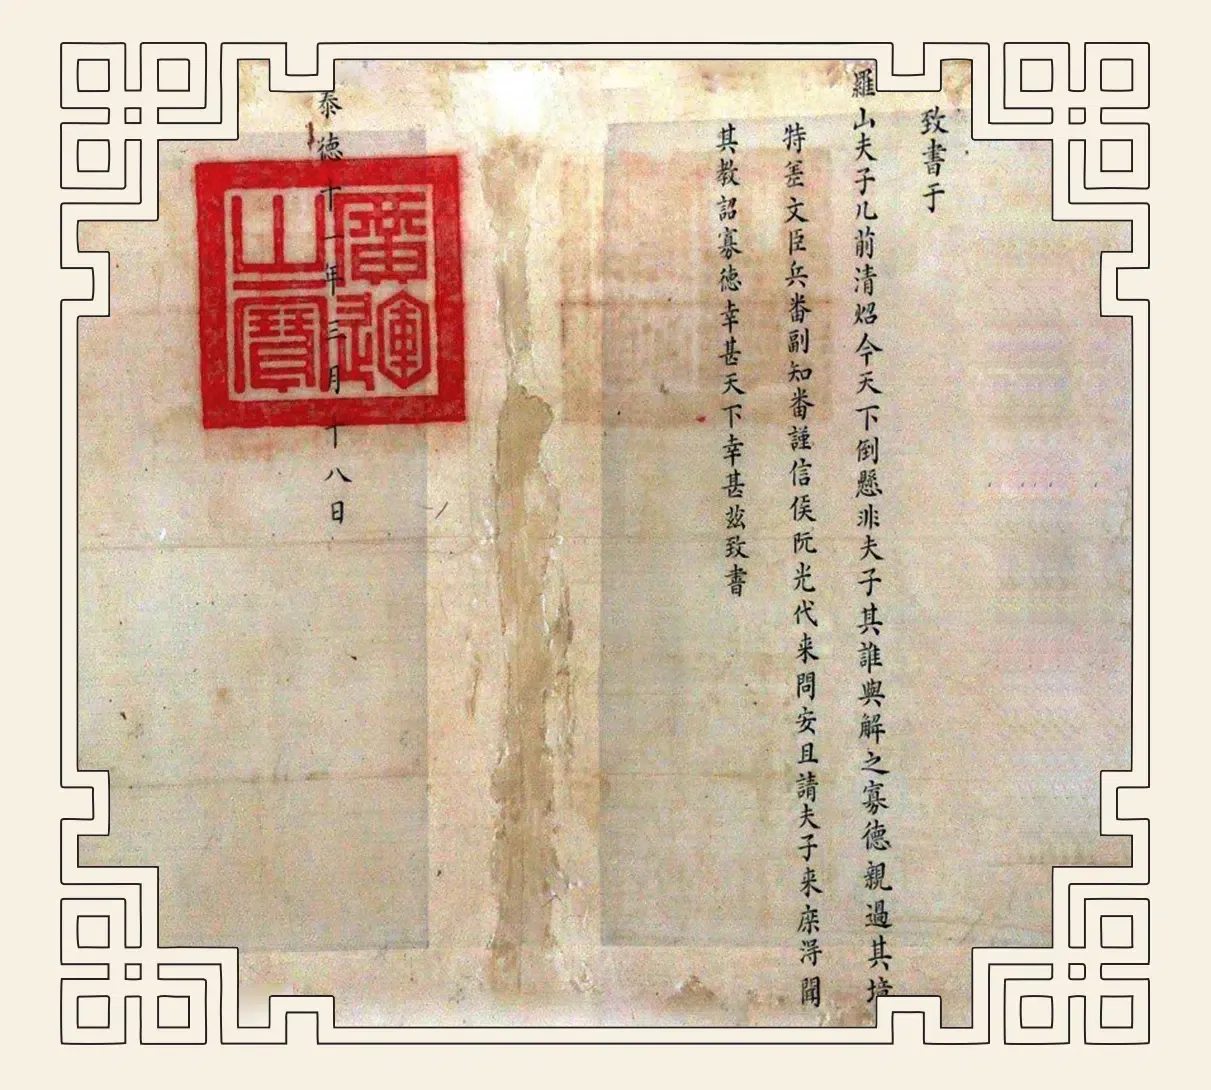 致書于
羅山夫子几前清炤今天下倒懸非夫子其誰與解之寡德親過其境
特差文臣兵番副知番謹信侯阮光代来問安且請夫子来庶得聞
其教詔寡徳幸甚天下幸甚茲致書
泰徳十一年三月十八日
廣運之寶